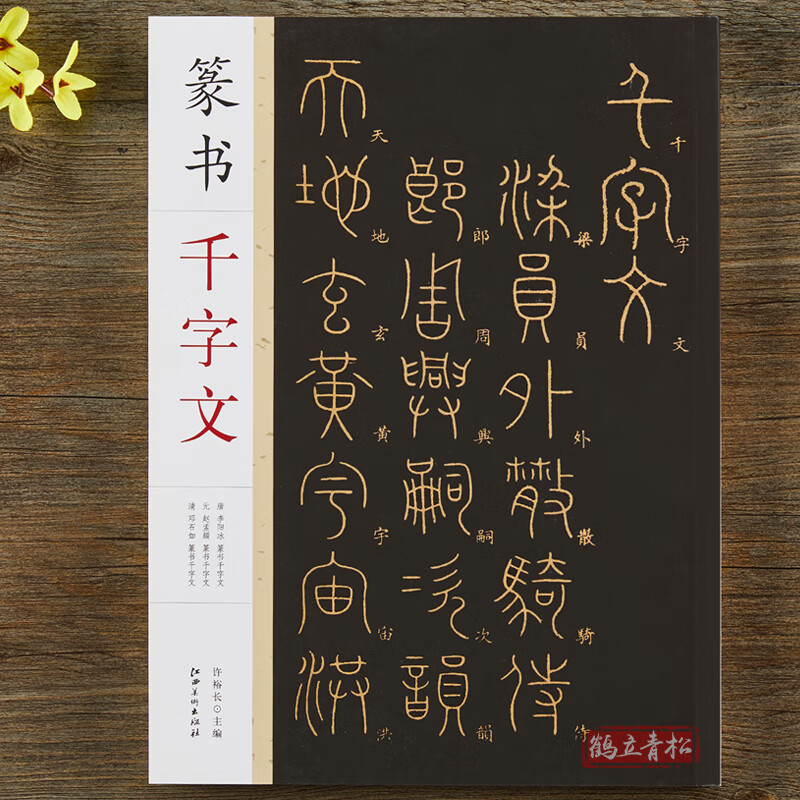 篆书
千字文
唐 李阳冰 篆书千字文
元 赵孟頫 篆书千字文
清 邓石如 篆书千字文
许裕长⊙主编
江西美术出版社
千字文
千字文
梁員外散騎侍
梁員外散騎侍
郎周興嗣次韻
郎周興嗣次韻
天地玄黃宇宙洪
天地玄黃宇宙洪
鹤立青松